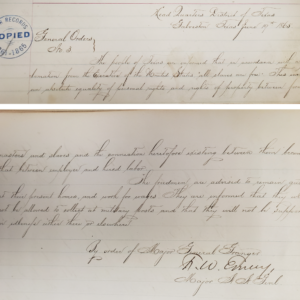 RECORDS
COPIED
1885
Head Quarters District of Texas
Galveston Texas June 19th 1865.
General Orders
No. 3
The people of Texas are informed that in accordance with a
from the Executive of the United States "all slaves are free." This
an absolute equality of personal rights and rights of property between
masters and slaves and the connection heretofore existing between them
that between employer and hired labor.
The freedmen are advised to remain
at their present homes, and work for wages. They are informed that they will
not be allowed to collect at military posts and that they will not be supported
in idleness either there or elsewhere.
By order of Major General Granger
F. W. Emery
Major A. A. Genl.